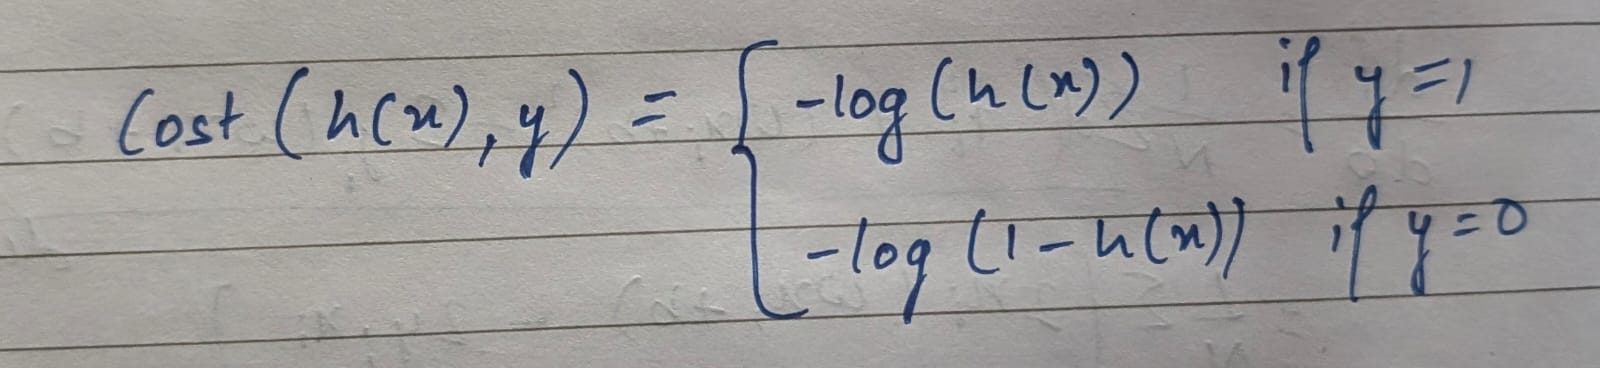 Cost (h(x), y) = { -log (h(x)) if y = 1
-log (1 - h(x)) if y = 0